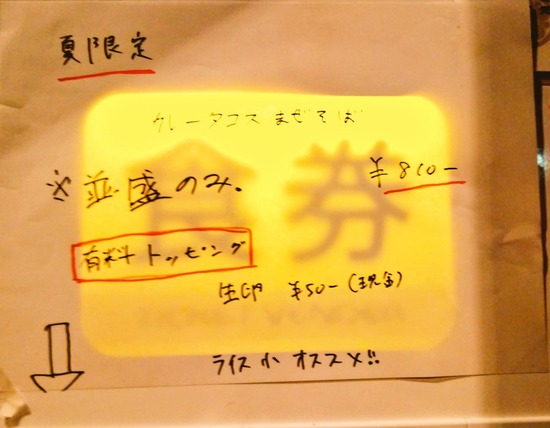 夏限定
カレータコスまぜそば
¥810-
※並盛のみ。
食券
有料トッピング
生卵 ¥50-(現金)
ライス小 オススメ!!